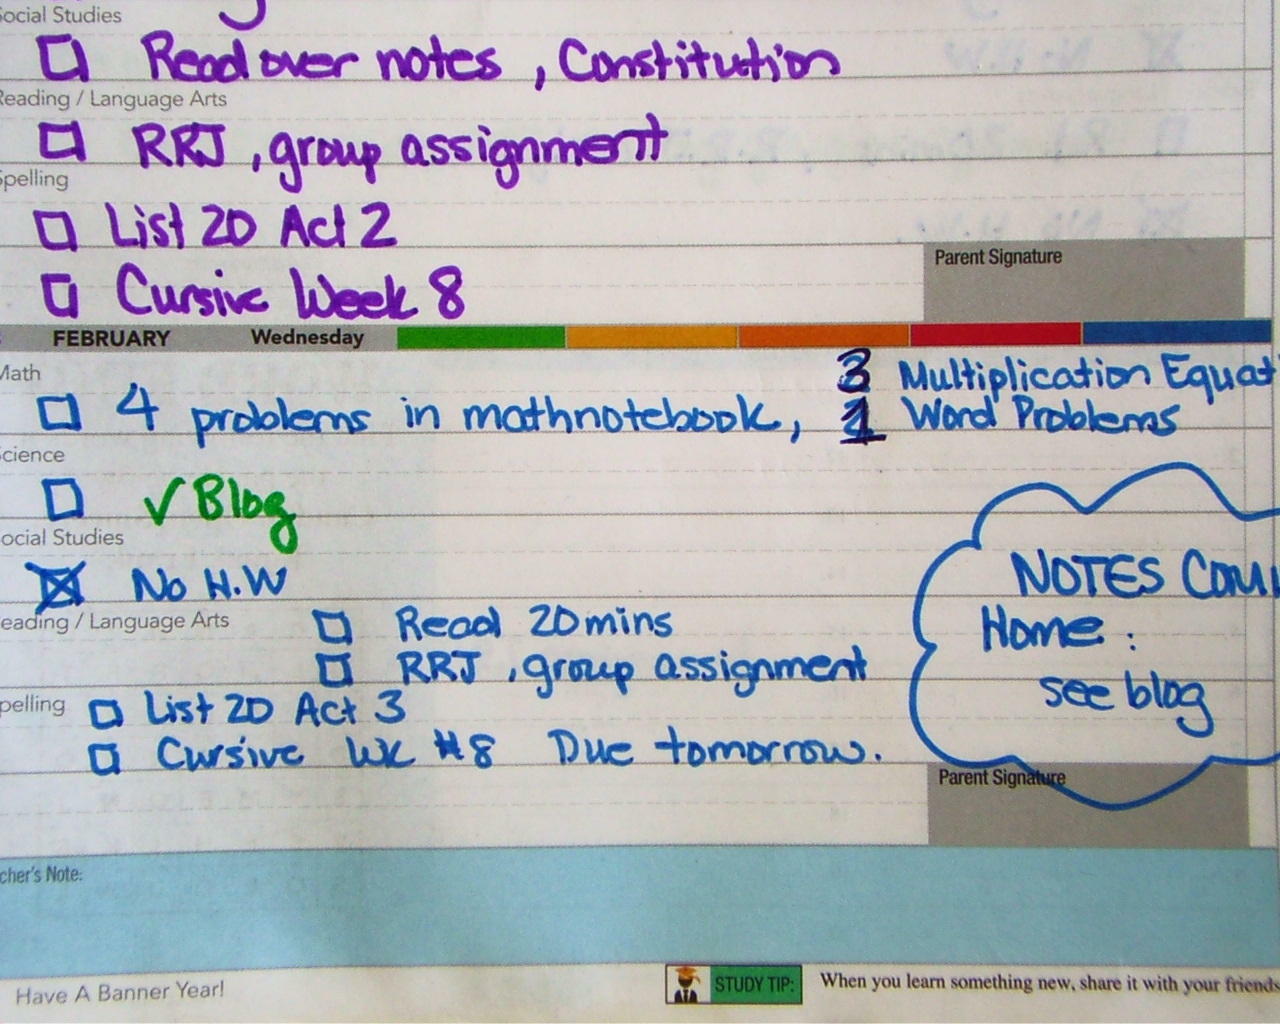 Social Studies
Read over notes, Constitution
Reading / Language Arts
RRJ, group assignment
Spelling
List 20 Act 2
Parent Signature
Cursive Week 8
FEBRUARY Wednesday
Math
3 Multiplication Equat
4 problems in mathnotebook, 1 Word Problems
Science
√ Blog
Social Studies
No H.W
NOTES Com
Home:
see blog
Reading / Language Arts
Read 20 mins
RRJ, group assignment
Spelling
List 20 Act 3
Cursive WK #8 Due tomorrow.
Parent Signature
cher's Note:
Have A Banner Year!
STUDY TIP: When you learn something new, share it with your friends